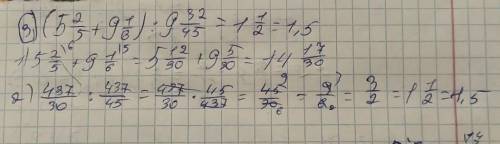 3) (5 2/5 + 9 1/6) : 9 32/45 = 1 1/2 = 1,5
1) 5 2/5 \6 + 9 1/6 \5 = 5 12/30 + 9 5/30 = 14 17/30
2) 437/30 : 437/45 = 437/30 · 45/437 = 45 9/30 6 = 9/6 = 3/2 = 1 1/2 = 1,5